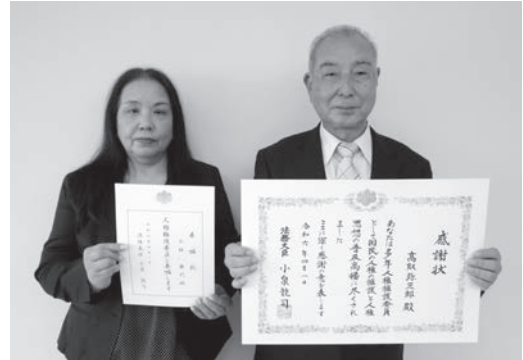 感謝状
高取弥三郎 殿
あなたは多年人権擁護委員
として国民の人権の擁護と人権
思想の普及高揚に尽くされ
ました
ここに深く感謝の意を表します
令和六年四月一日
法務大臣 小泉龍司
人権擁護委員を委嘱します